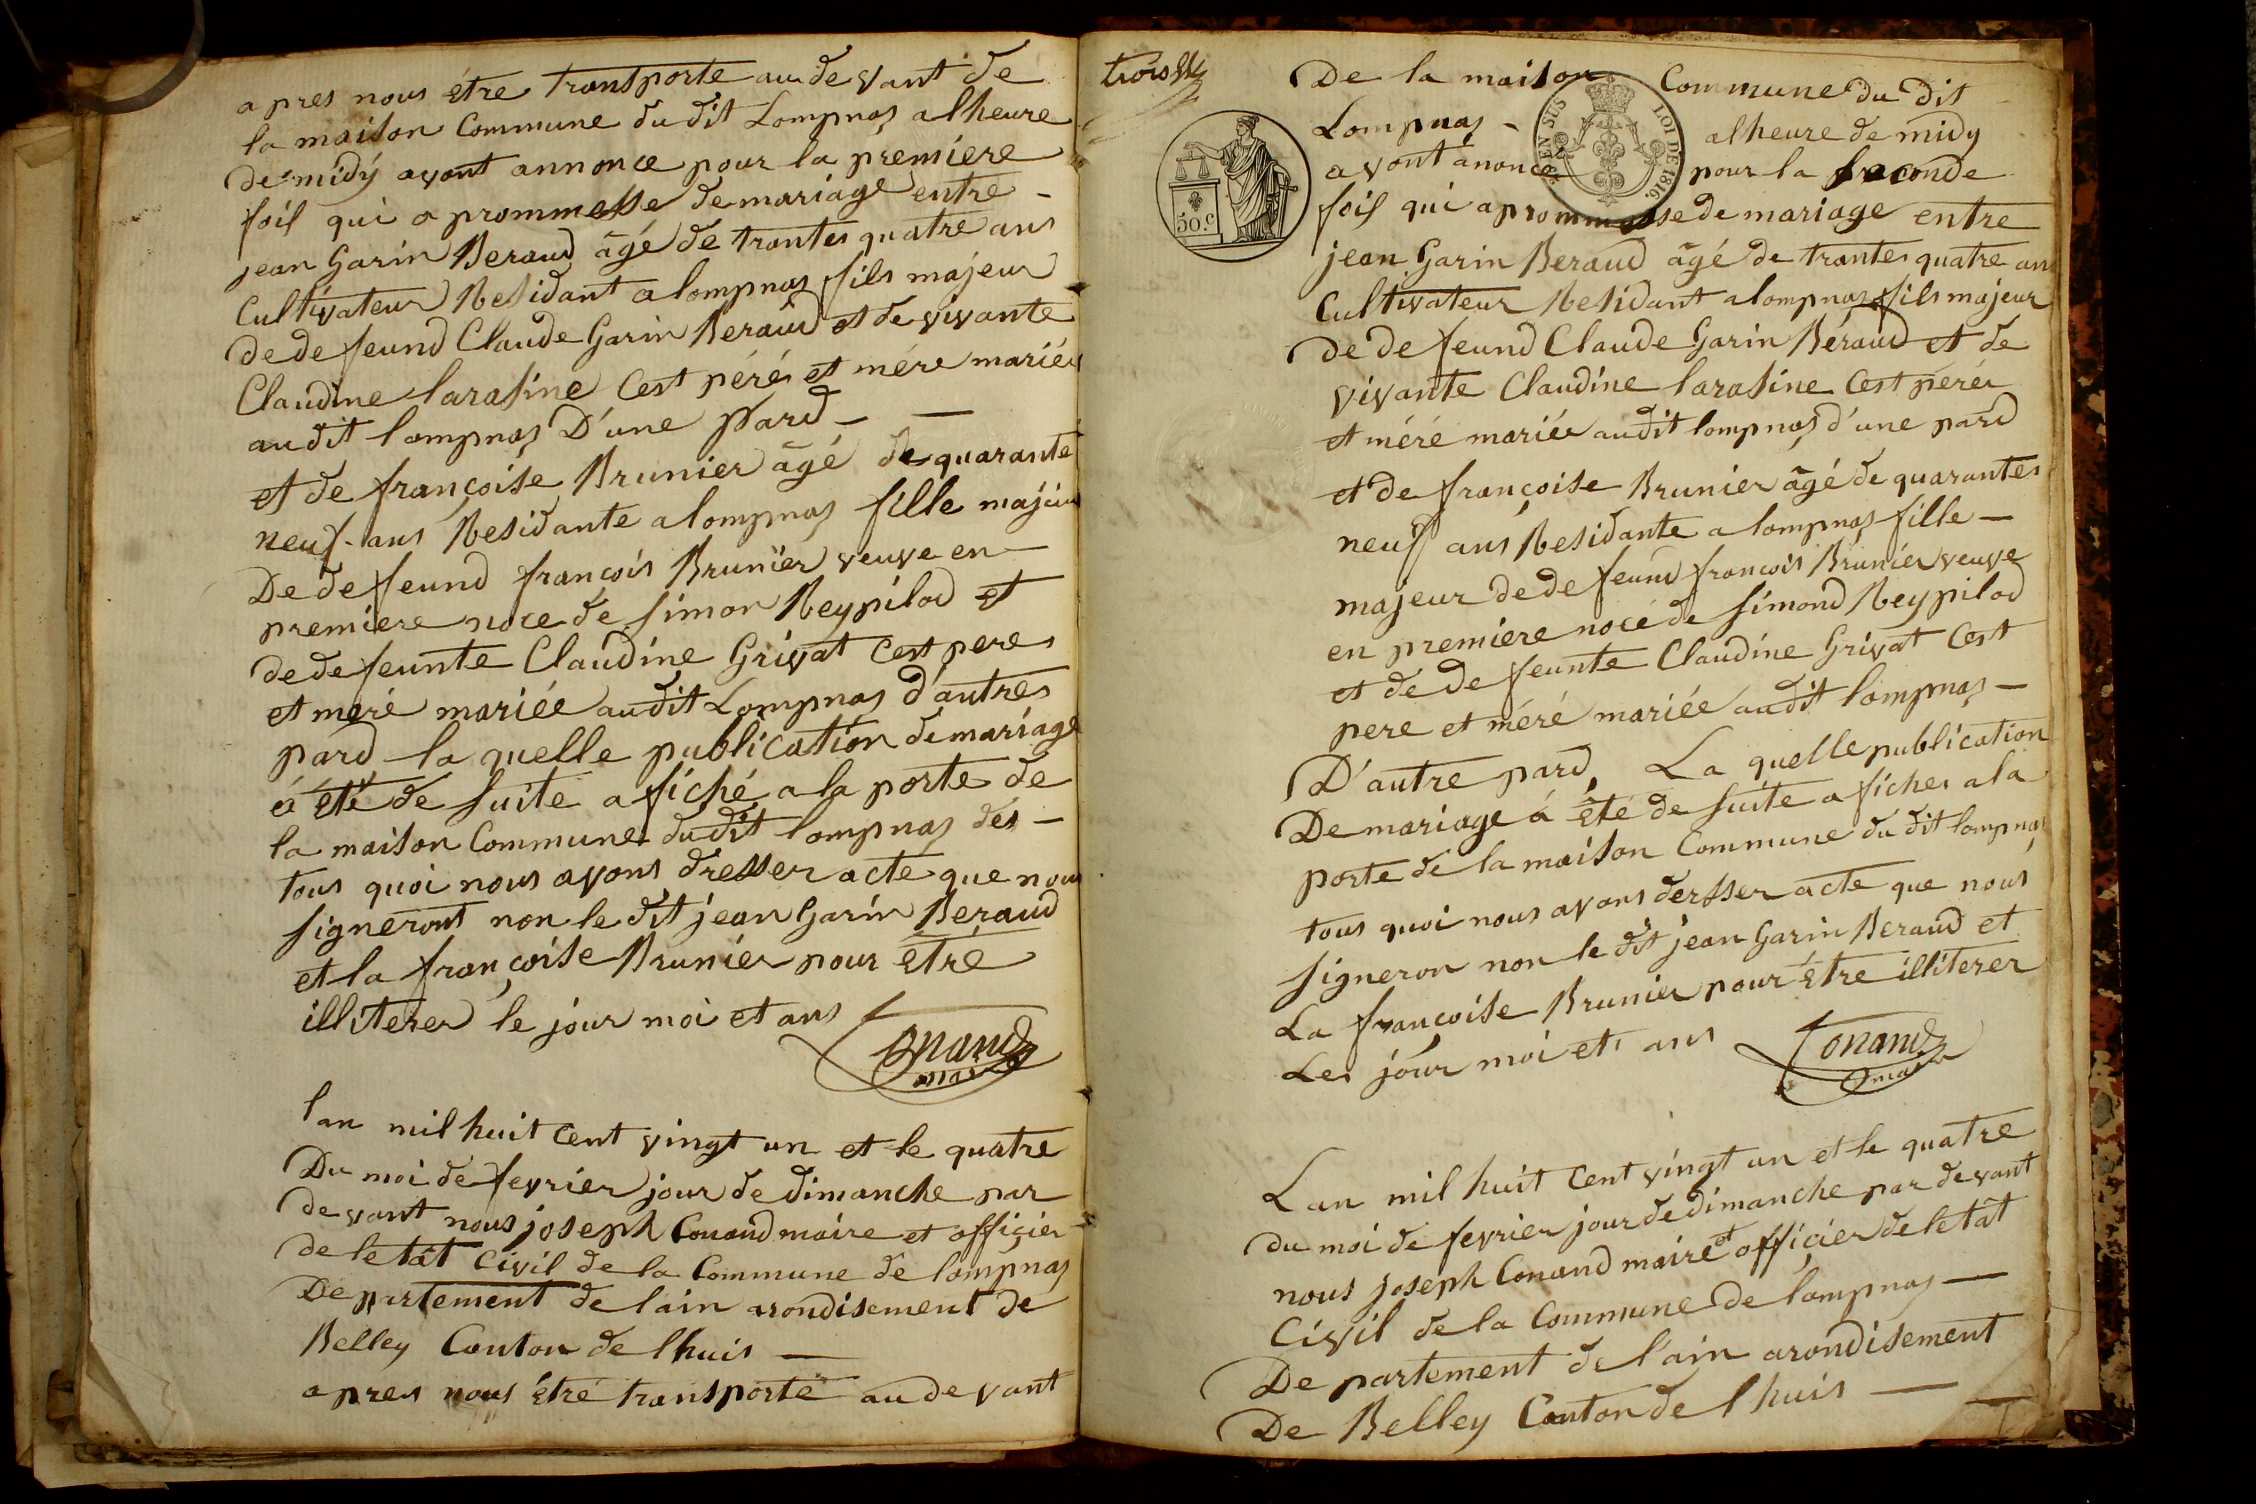 apres nous être transporte au devant de
la maison Commune du dit Lompnas alheure
de midy avont annonce pour la premiere
fois qui a prommesse de mariage entre -
jean Garin Beraud âgé de trantes quatre ans
Cultivateur Residant a lompnas fils majeur
de defeund Claude Garin Beraud et de vivante
Claudine larasine Cest péré et mére mariés
audit lompnas D'une pard - -
et de françoise Brunier âgé de quarante
neuf ans Residante a lompnas fille majeur
De defeund françois Brunier veuve en -
premiere noce de simon Reypilod et
de defeunte Claudine Grivat Cest pere
et meré mariée audit Lompnas d'autres
pard la quelle publication de mariage
á été de suite afiché a la porte de
la maison Commune dudit lompnas dés -
tous quoi nous avons dresser acte que nous
signeront non le dit jean Garin Beraud
et la françoise Brunier pour être
illiterer le jour moi et ans
Conand
maire
lan mil huit Cent vingt un et le quatre
Du moi de fevrier jour de dimanche par
devant nous joseph Conand maire et officier
de letât Civil de la Commune de lompnas
Departement de lain arondisement de
Belley Canton de lhuis -
apres nous étré transporté au devant
trois
De la maison Commune du dit
EN SUS LOI DE 1816.
Lompnas - alheure de midy
avont anoncé pour la seconde
50.c
fois qui a prommesse de mariage entre
jean Garin Beraud âgé de trantes quatre ans
Cultivateur Residant a lompnas fils majeur
de defeund Claude Garin Béraud et de
vivante Claudine larasine Cest pérér
et méré mariér audit lompnas d'une pard
et de françoise Brunier âgé de quarantes
neuf ans Residante a lompnas fille -
majeur de defeund françois Brunier veuve
en premiere nocé de simond Reypilod
et dé defeunte Claudine Grivat Cest
pere et méré mariée audit lompnas -
D'autre pard, La quelle publication
De mariage á été de suite afiches a la
porte de la maison Commune du dit lompnas
tous quoi nous avons dersser acte que nous
signeron non le dit jean Garin Beraud et
La françoise Brunier pour être illiterer
Le jour moi et ans
Conand
maire
Lan mil huit Cent vingt un et le quatre
du moi de fevrier jour de dimanche par devant
nous joseph Conand maire et officier de letat
Civil de la Commune de lompnas -
Departement de lain arondisement
De Belley Canton de lhuis -